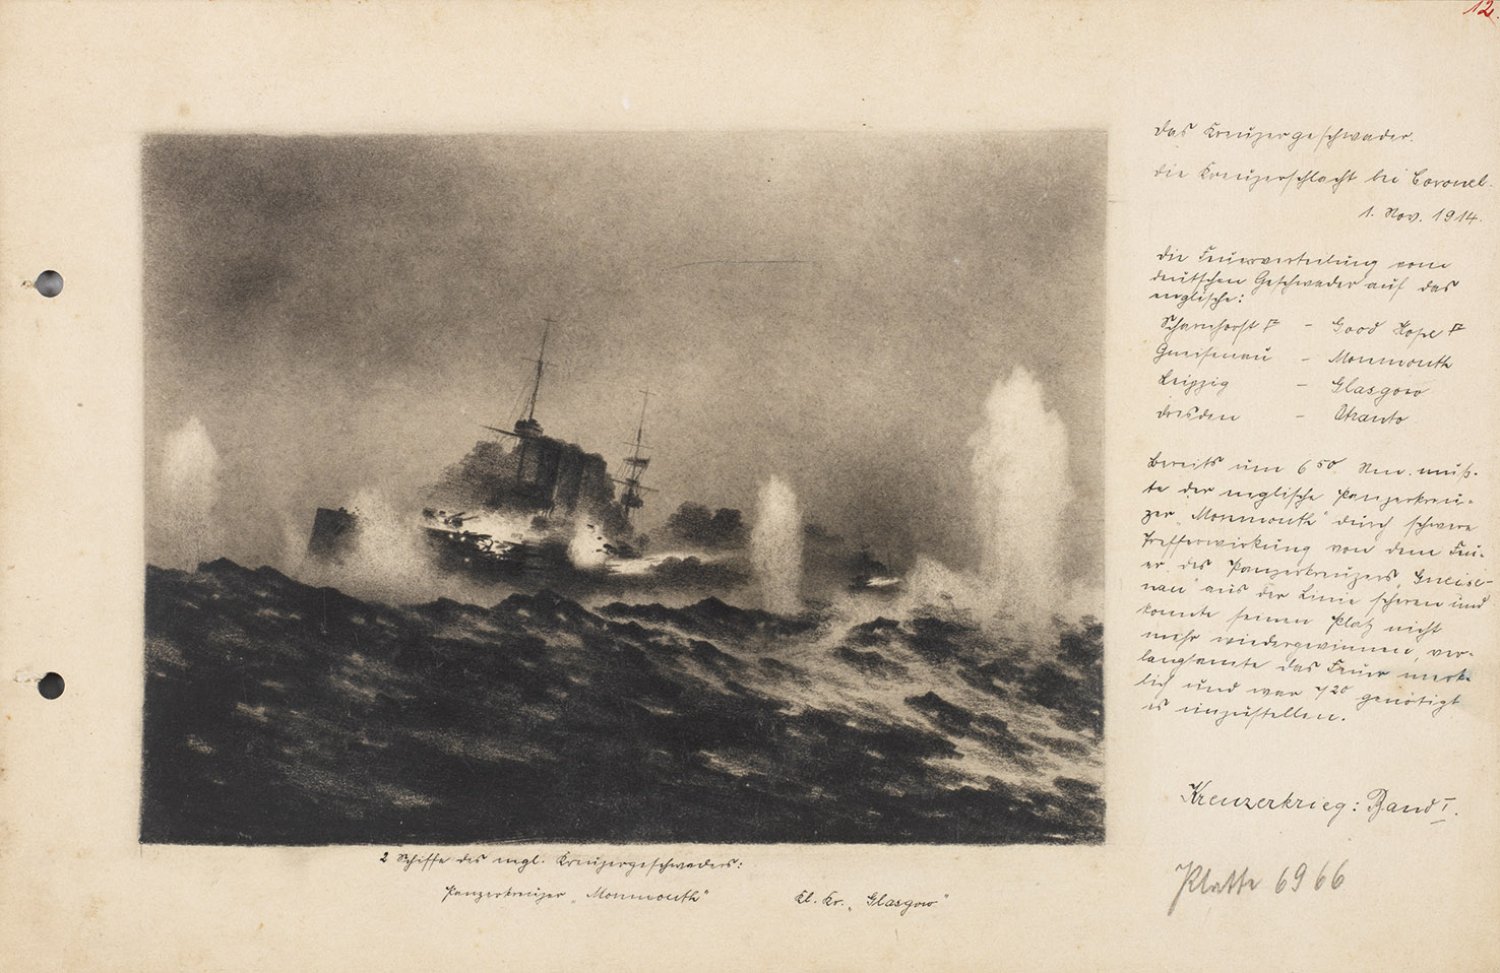 12.
Das Kreuzergeschwader.
Die Kreuzerschlacht bei Coronel.
1. Nov. 1914.
Die Feuerverteilung vom
deutschen Geschwader auf das
englische:
Scharnhorst - Good Hope
Gneisenau - Monmouth
Leipzig - Glasgow
Dresden - Otranto
Bereits um 6 50 Nm. muß-
te der englische Panzerkreu-
zer „Monmouth" durch schwere
Trefferwirkung von dem Feu-
er des Panzerkreuzers „Gneise-
nau" aus der Linie scheren und
konnte seinen Platz nicht
mehr wiedergewinnen, ver-
langsamte das Feuer merk-
lich und war 7 20 genötigt
es einzustellen.
Kreuzerkrieg: Band I.
Platte 6966
2 Schiffe des engl. Kreuzergeschwaders:
Panzerkreuzer „Monmouth" Kl. Kr. „Glasgow"